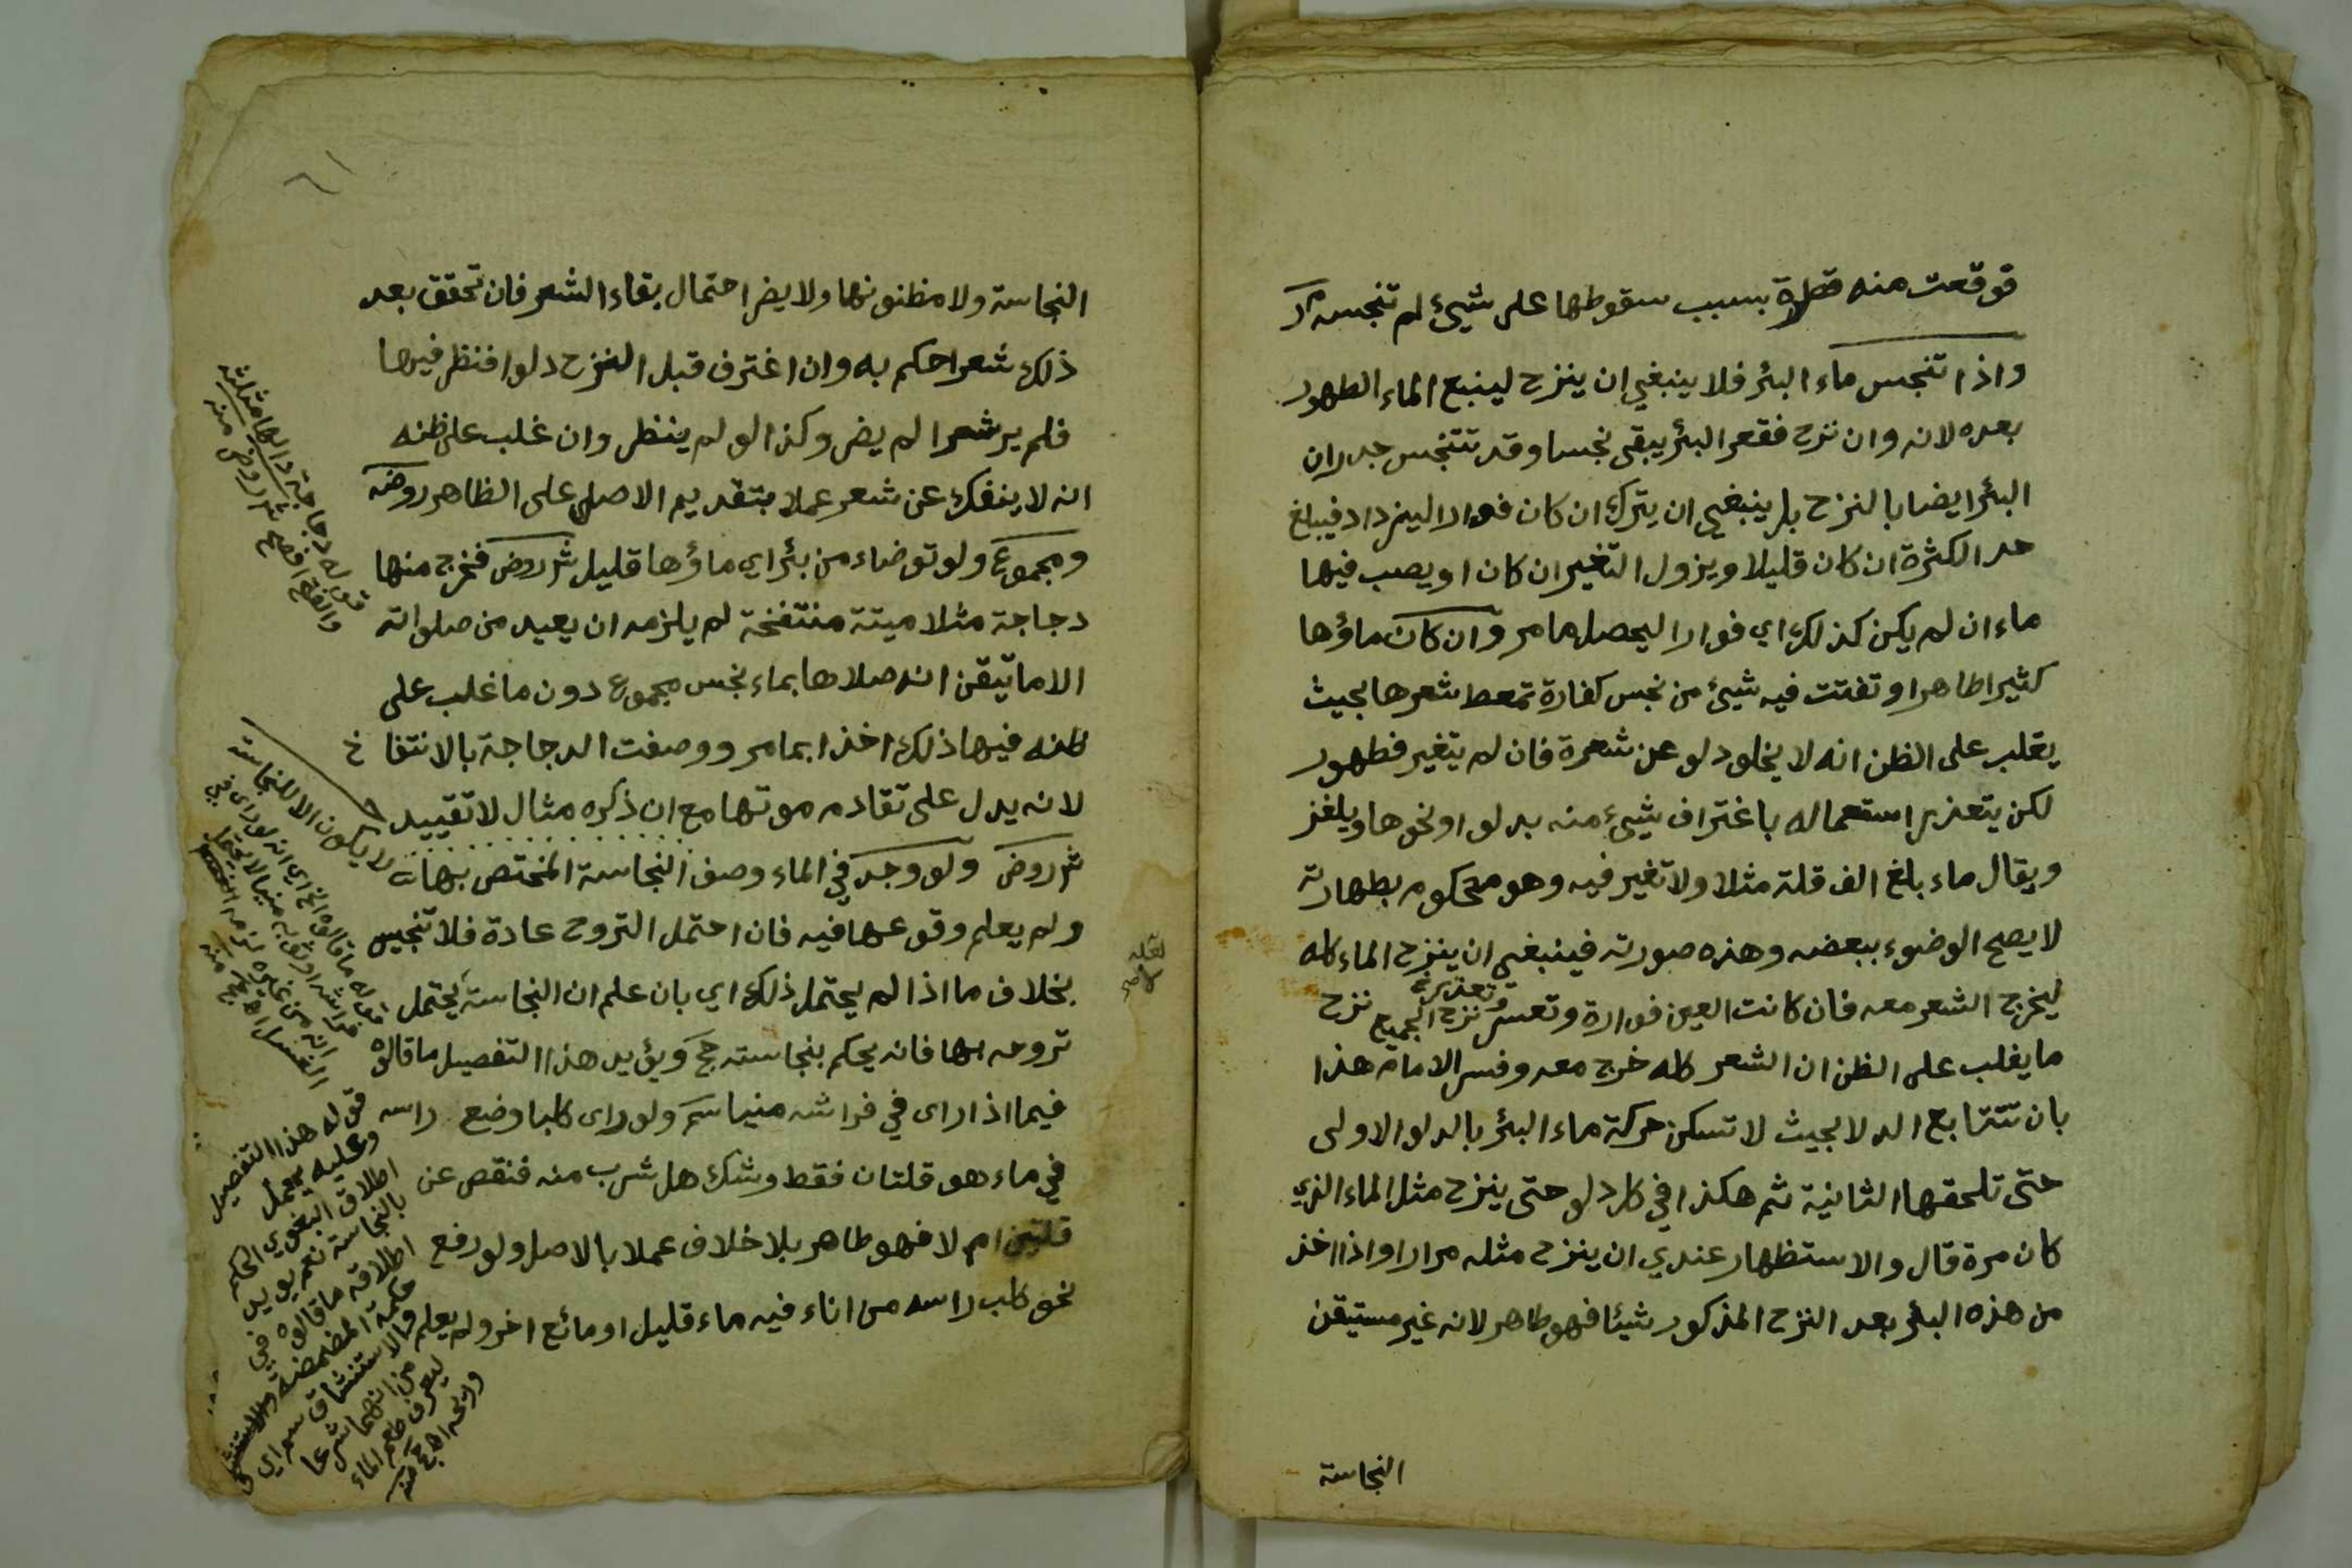 قوقعت منه قطرة بسبب سقوطها على شيئ لم تنجسه مر
واذا تنجس ماء البئر فلا ينبغي ان ينزح لينبع الماء الطهور
بعده لانه وان نزح فقعر البئر يبقى نجسا وقد تتنجس جدران
البئر ايضا بالنزح بل ينبغي ان يترك ان كان فوارا ليزداد فيبلغ
حد الكثرة ان كان قليلا ويزول التغير ان كان او يصب فيها
ماء ان لم يكن كذلك اي فوارا ليحصل ما مر وان كان ماؤها
كثيرا طاهرا وتفتت فيه شيئ من نجس كفارة تمعط شعرها بحيث
يغلب على الظن انه لا يخلو دلو عن شعرة فان لم يتغير فطهور
لكن يتعذر استعماله باغتراف شيئ منه بدلو او نحوها ويلغز
ويقال ماء بلغ الف قلة مثلا ولا تغير فيه وهو محكوم بطهارته
لا يصح الوضوء ببعضه وهذه صورته فينبغي ان ينزح الماء كله
ليخرج الشعر معه فان كانت العين فوارة وتعسر نزح الجميع نزح
ما يغلب على الظن ان الشعر كله خرج معه وفسر الامام هذا
بان تتتابع الدلا بحيث لا تسكن حركة ماء البئر بالدلو الاولى
حتى تلحقها الثانية ثم هكذا في كل دلو حتى ينزح مثل الماء الذي
كان مرة قال والاستظهار عندي ان ينزح مثله مرارا واذا اخذ
من هذه البئر بعد النزح المذكور شيئا فهو طاهر لانه غير مستيقن
النجاسة
النجاسة ولا مظنونها ولا يضر احتمال بقاء الشعر فان تحقق بعد
ذلك شعرا حكم به وان اغترف قبل النزح دلوا فنظر فيها
فلم ير شعرا لم يضر وكذا لو لم ينظر وان غلب على ظنه
انه لا ينفك عن شعر عملا بتقديم الاصل على الظاهر روضه
ومجموع ولو توضاء من بئر اي ماؤها قليل شر روض فخرج منها
دجاجة مثلا ميتة منتفخة لم يلزمه ان يعيد من صلواته
الا ما تيقن انه صلاها بماء نجس مجموع دون ما غلب على
ظنه فيها ذلك اخذا بما مر ووصفت الدجاجة بالانتفاخ
لانه يدل على تقادم موتها مع ان ذكره مثال لا تقييد
شر روض ولو وجد في الماء وصف النجاسة المختص بها
ولم يعلم وقوعها فيه فان احتمل التروح عادة فلا تنجيس
بخلاف ما اذا لم يحتمل ذلك اي بان علم ان النجاسة يحتمل
تروحه بها فانه يحكم بنجاسته حج ويؤيد هذا التفصيل ما قالوه
فيما اذا راى في فراشه منيا سم ولو راى كلبا وضع راسه
في ماء هو قلتان فقط وشك هل شرب منه فنقص عن
قلتين ام لا فهو طاهر بلا خلاف عملا بالاصل ولو رفع
نحو كلب راسه من اناء فيه ماء قليل او مائع اخر ولم يعلم
قوله دجاجة دالها مثلثه
والفتح افصح شر روض منه
لا يكون الا للنجاسة
قوله هذا التفصيل
وعليه يحمل
اطلاق البغوي الحكم
بالنجاسة نعم يويد
اطلاقه ما قالوه في
حكمة المضمضة والاستنشاق